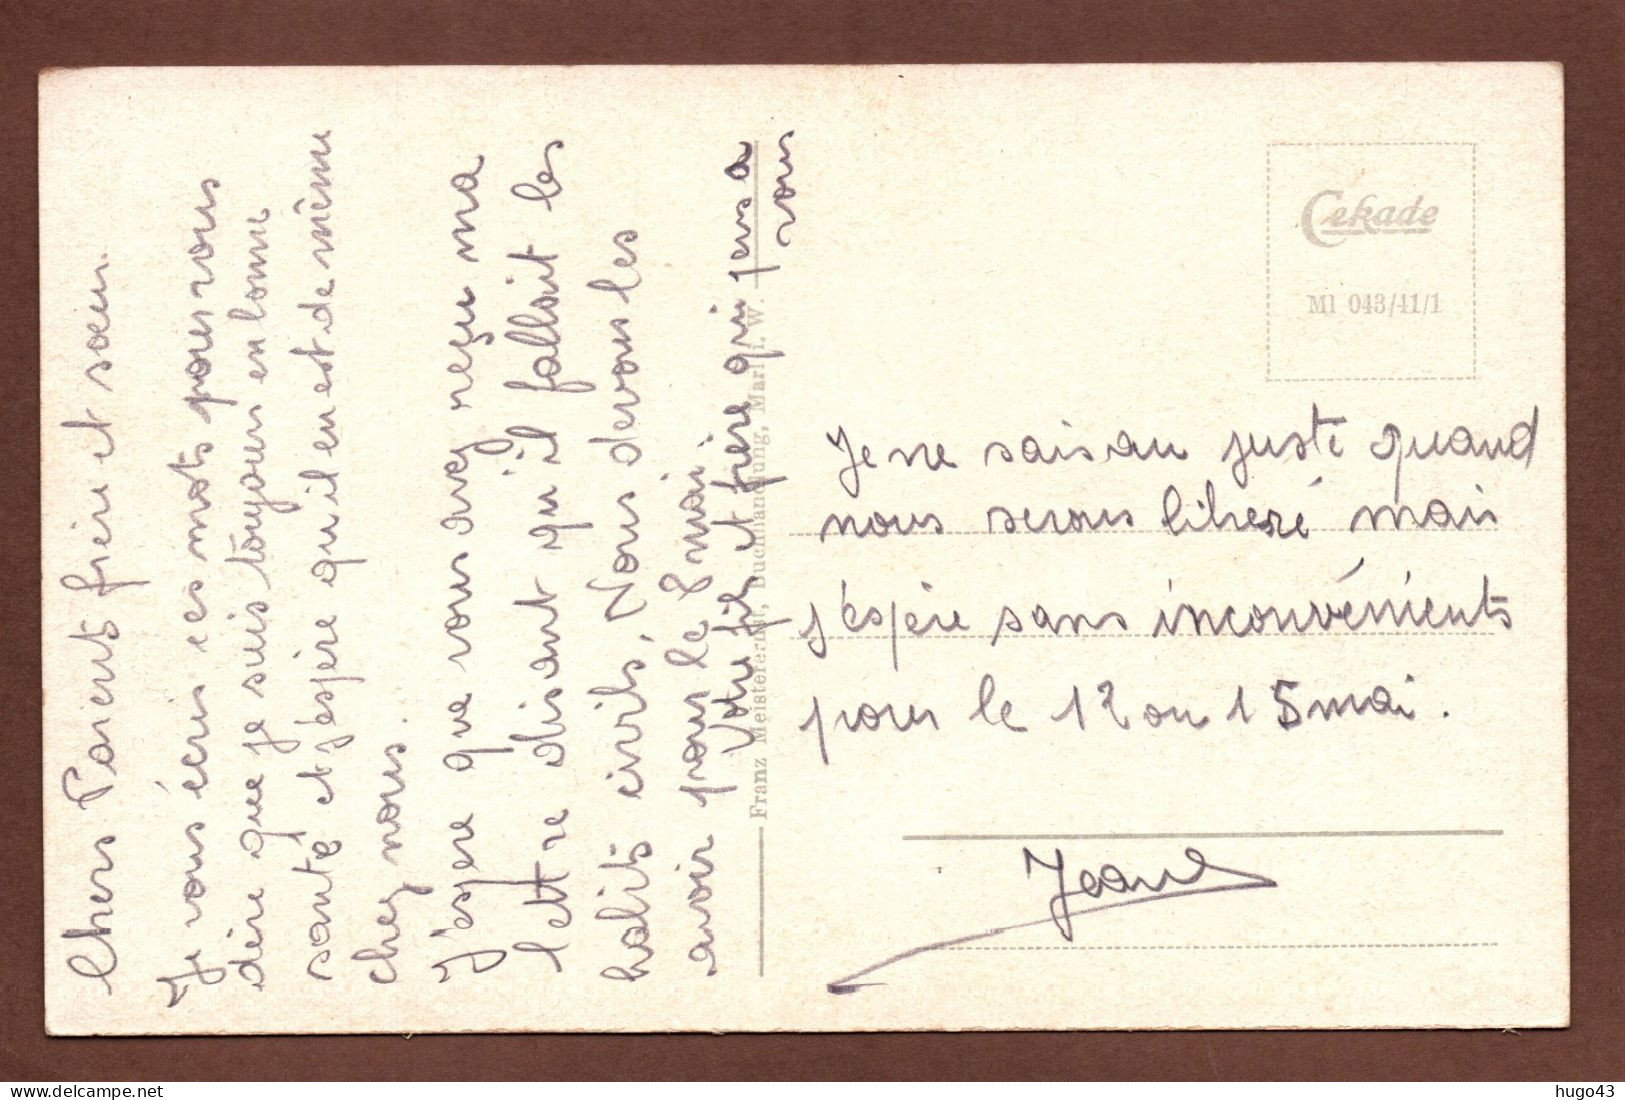 Chers Parents frère et sœur.
Je vous écris ces mots pour vous
dire que je suis toujours en bonne
santé et j'espère qu'il en est de même
chez vous.
J'espere que vous avez reçu ma
lettre disant qu'il fallait les
habits civils, Nous devons les
avoir pour le 8 mai.
Votre fils et frère qui pens a
vous
Franz Meister Buchhandlung, Mar i. W.
Cekade
MI 043/41/1
Je ne sais au juste quand
nous serons liberé mais
j'espère sans inconvénients
pour le 12 ou 15 mai.
Jean
hugo43